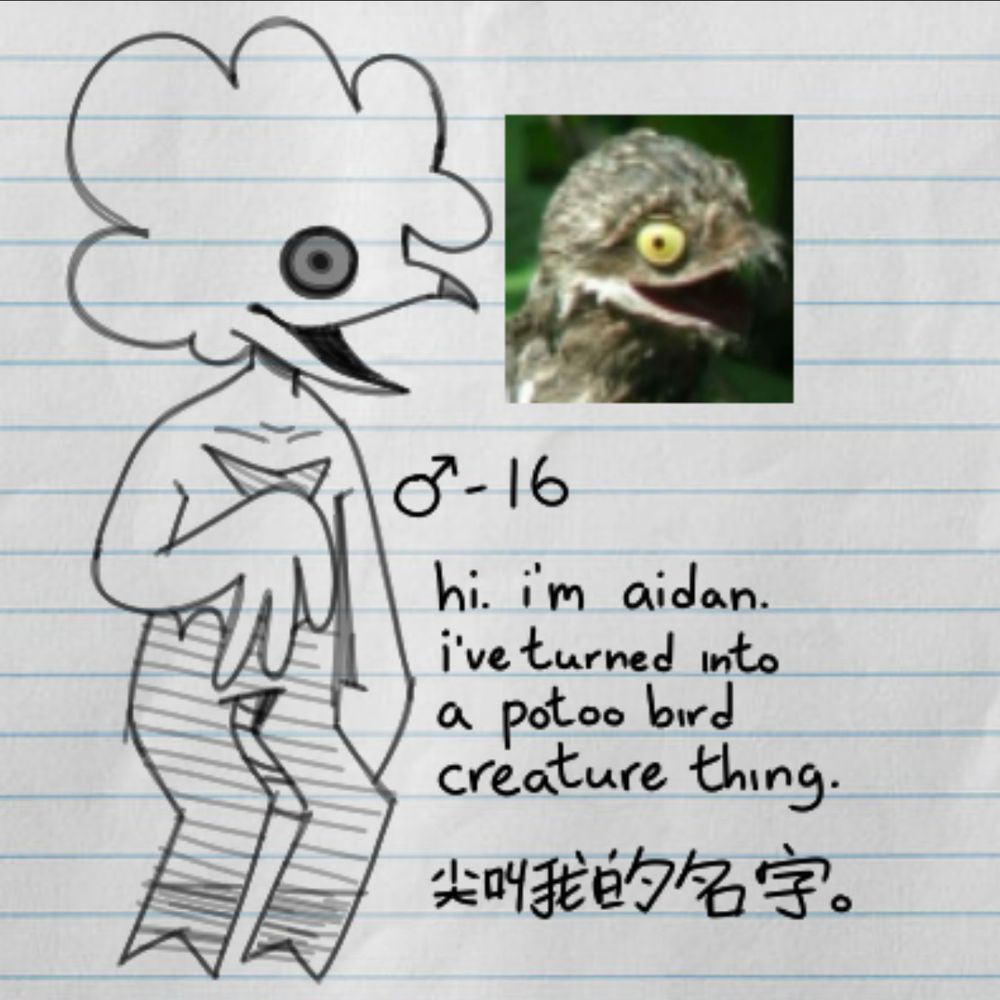 ♂-16
hi. i'm aidan.
i've turned into
a potoo bird
creature thing.
尖叫我的名字。